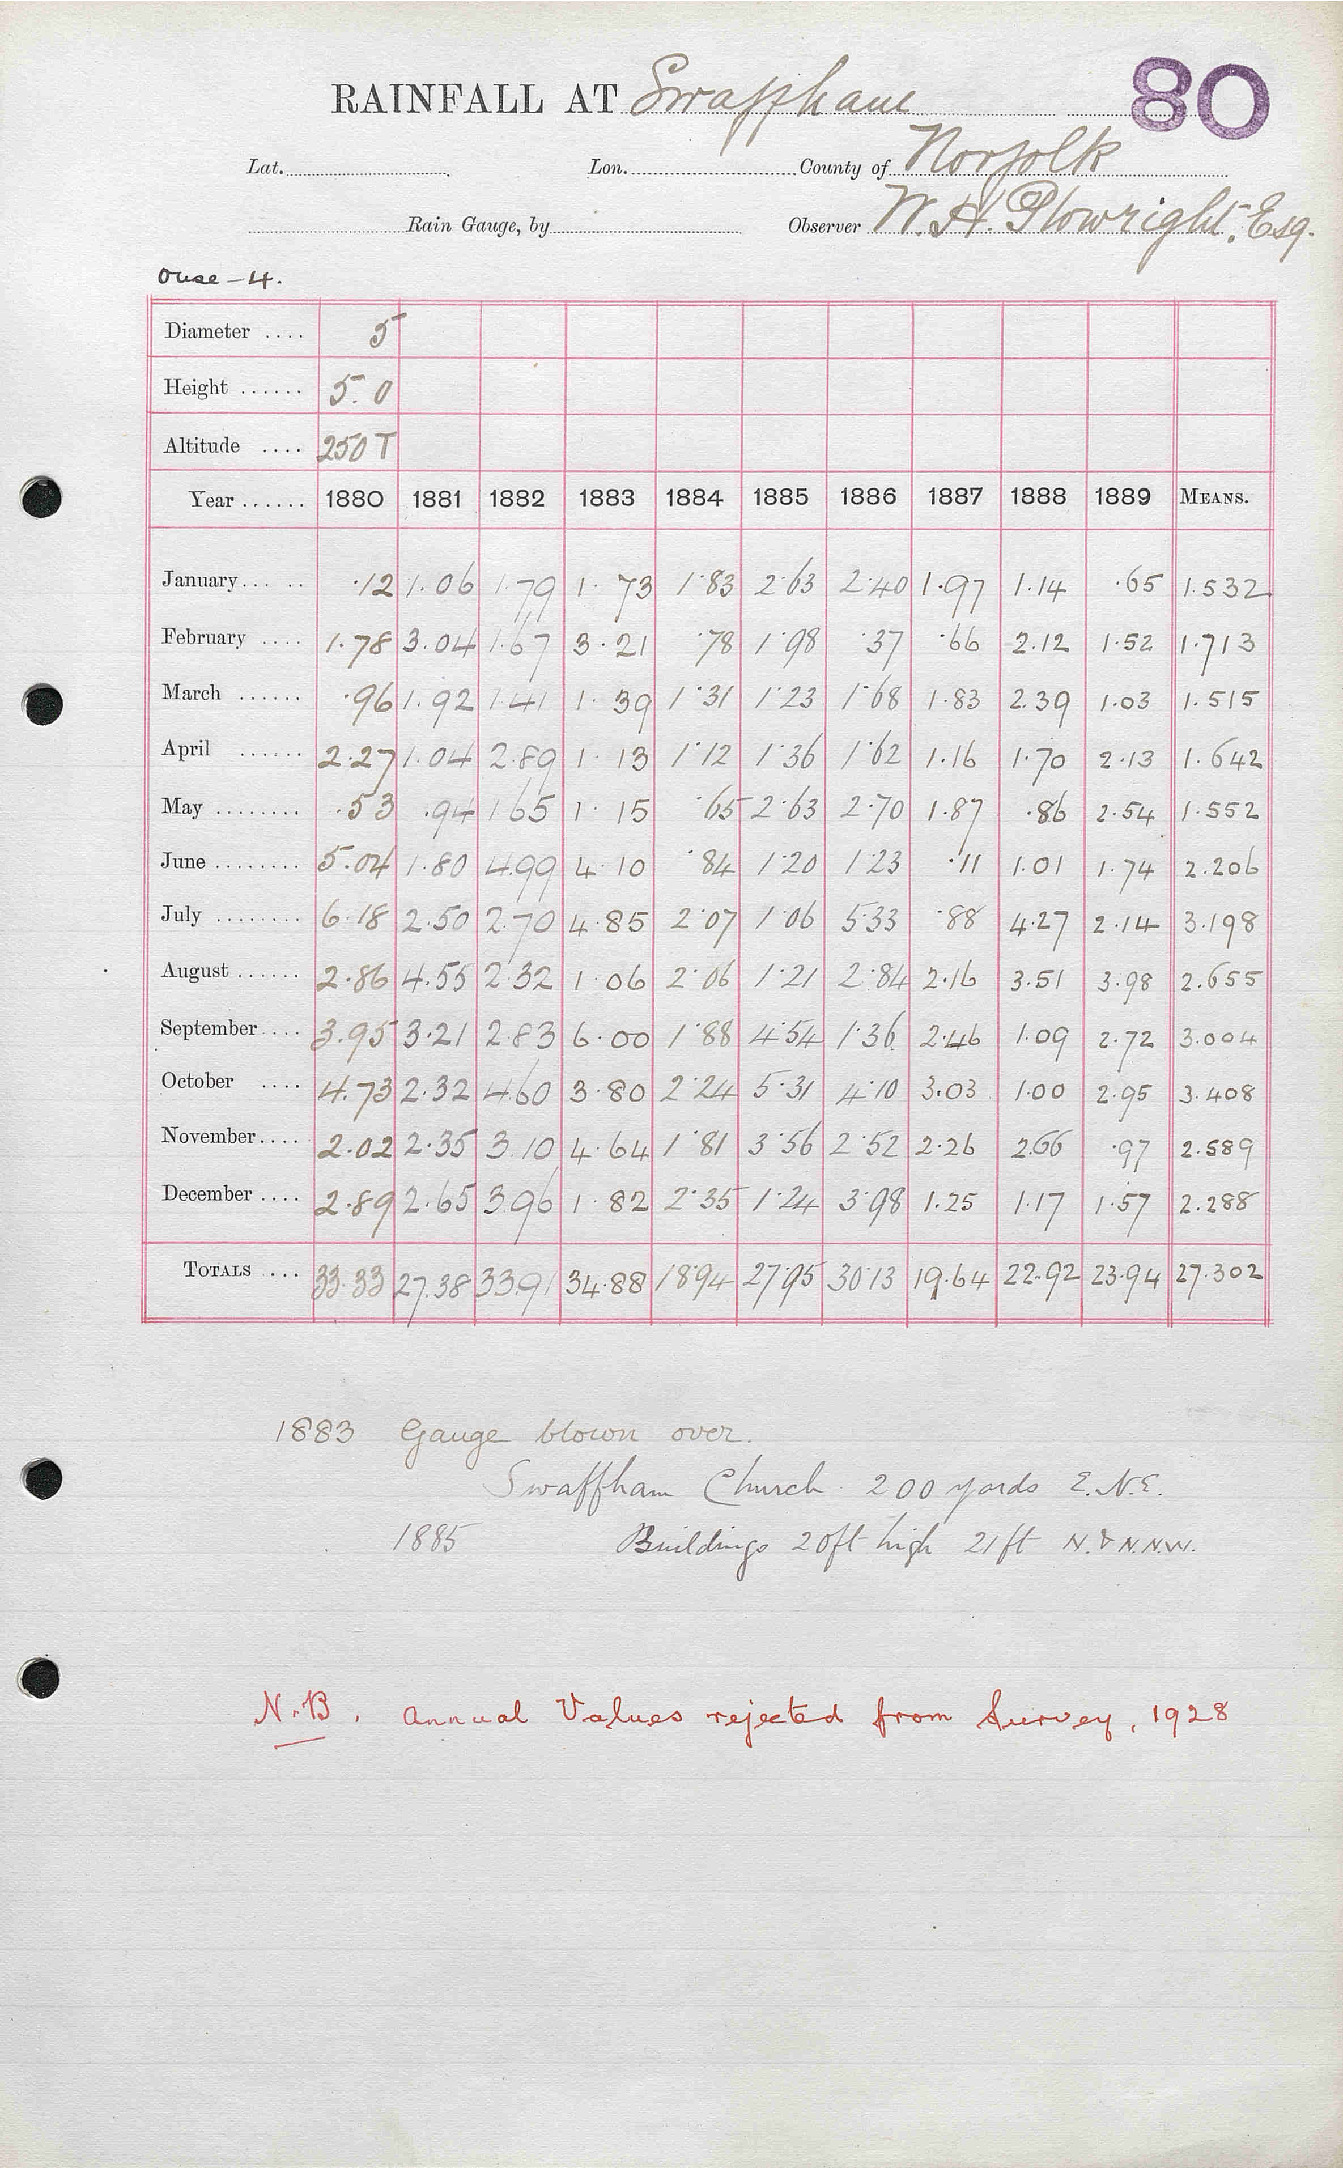 RAINFALL AT Swaffham 80
Lat. Lon. County of Norfolk
Rain Gauge, by Observer W. H. Plowright, Esq.
Ouse - 4.
Diameter .... 5
Height ...... 5.0
Altitude .... 250 T
Year ...... 1880 1881 1882 1883 1884 1885 1886 1887 1888 1889 MEANS.
January... .. .12 1.06 1.79 1.73 1.83 2.63 2.40 1.97 1.14 .65 1.532
February .... 1.78 3.04 1.67 3.21 .78 1.98 .37 .66 2.12 1.52 1.713
March ...... .96 1.92 1.41 1.39 1.31 1.23 1.68 1.83 2.39 1.03 1.515
April ...... 2.27 1.04 2.89 1.13 1.12 1.36 1.62 1.16 1.70 2.13 1.642
May ........ .53 .94 1.65 1.15 .65 2.63 2.70 1.87 .86 2.54 1.552
June ........ 5.04 1.80 4.99 4.10 .84 1.20 1.23 .11 1.01 1.74 2.206
July ........ 6.18 2.50 2.70 4.85 2.07 1.06 5.33 .88 4.27 2.14 3.198
August ...... 2.86 4.55 2.32 1.06 2.06 1.21 2.84 2.16 3.51 3.98 2.655
September.... 3.95 3.21 2.83 6.00 1.88 4.54 1.36 2.46 1.09 2.72 3.004
October .... 4.73 2.32 4.60 3.80 2.24 5.31 4.10 3.03 1.00 2.95 3.408
November.... 2.02 2.35 3.10 4.64 1.81 3.56 2.52 2.26 2.66 .97 2.589
December .... 2.89 2.65 3.96 1.82 2.35 1.24 3.98 1.25 1.17 1.57 2.288
TOTALS ... 33.33 27.38 33.91 34.88 18.94 27.95 30.13 19.64 22.92 23.94 27.302
1883 Gauge blown over.
Swaffham Church. 200 yards E.N.E.
1885 Buildings 20ft high 21ft N. & N.N.W.
N.B. Annual Values rejected from Survey, 1928